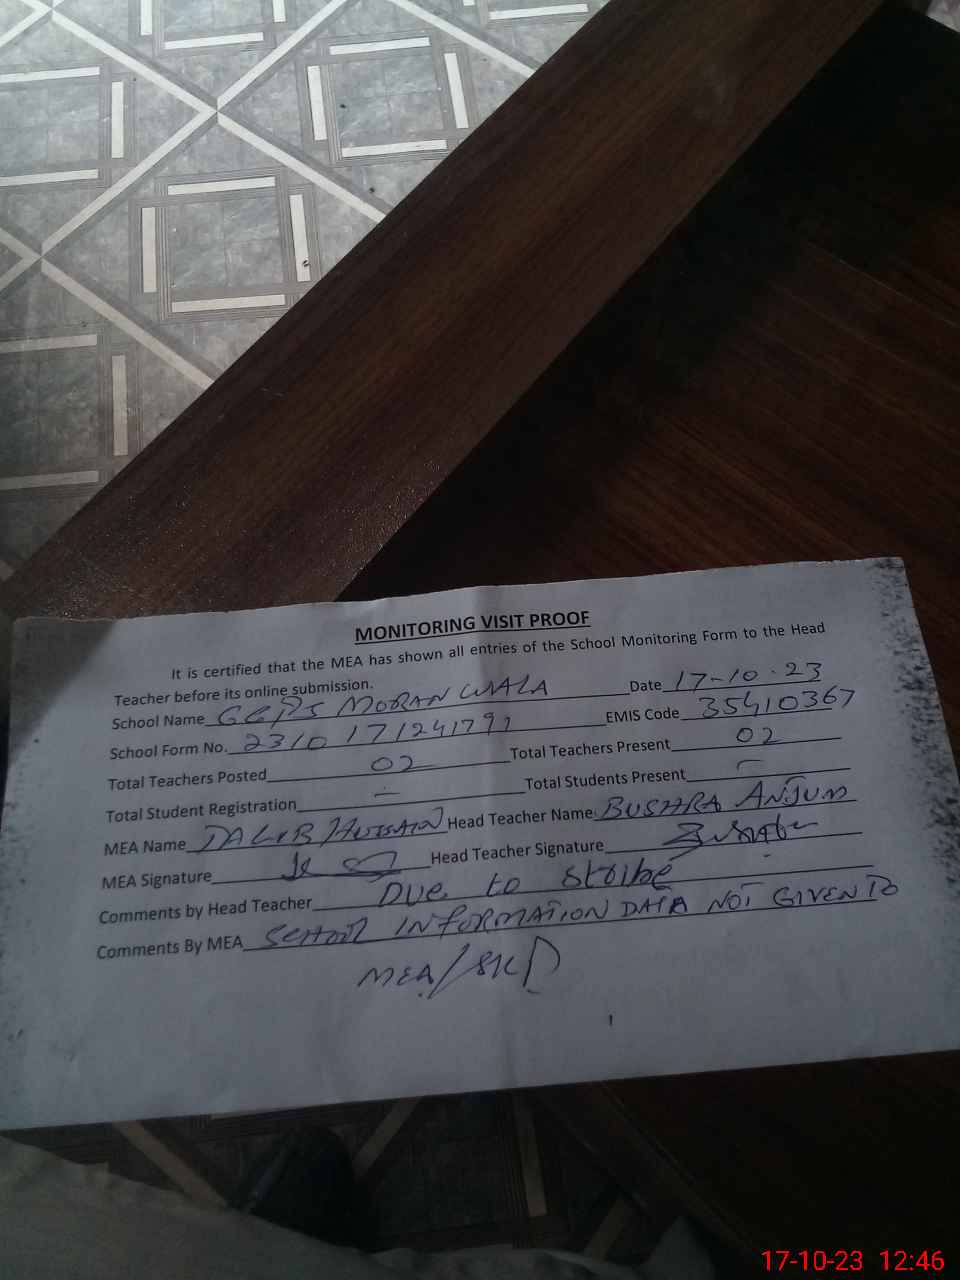 MONITORING VISIT PROOF
It is certified that the MEA has shown all entries of the School Monitoring Form to the Head
Teacher before its online submission.
School Name GGPS MORAN WALA Date 17-10-23
School Form No. 2310171241791 EMIS Code 35410367
Total Teachers Posted 02 Total Teachers Present 02
Total Student Registration — Total Students Present —
MEA Name TALIB HUSSAIN Head Teacher Name BUSHRA ANJUM
MEA Signature Head Teacher Signature
Comments by Head Teacher Due to stribe
Comments By MEA SCHOOL INFORMATION DATA NOT GIVEN TO
MEA/SKP
17-10-23 12:46